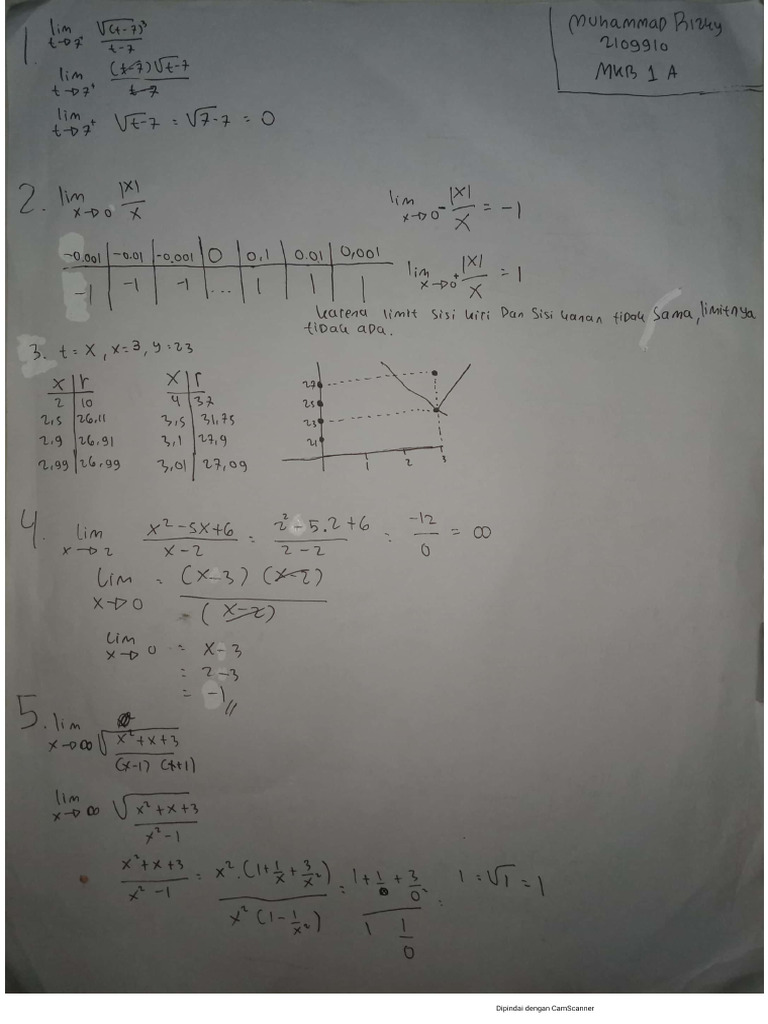 Muhammad Rizky
2109910
MKB 1 A
1. lim t→7⁺ √(t-7)³ / t-7
lim t→7⁺ (t-7)√t-7 / t-7
lim t→7⁺ √t-7 = √7-7 = 0
2. lim x→0 |x|/x
lim x→0⁻ |x|/x = -1
-0.001 | -0.01 | -0.001 | 0 | 0,1 | 0.01 | 0,001
-1 | -1 | -1 | ... | 1 | 1 | 1
lim x→0⁺ |x|/x = 1
karena limit sisi kiri Dan sisi kanan tidak sama, limitnya
tidak ada.
3. t = x , x=3, y=23
x | r
2 | 10
2,5 | 26,11
2,9 | 26,91
2,99 | 26,99
x | r
4 | 37
3,5 | 31,75
3,1 | 27,9
3,01 | 27,09
27
25
23
21
1 2 3
4. lim x→2 x²-5x+6 / x-2 = 2²-5.2+6 / 2-2 = -12/0 = ∞
Lim x→0 = (x-3) (x-2) / (x-2)
Lim x→0 = x-3
= 2-3
= -1 //
5. lim x→∞ √x²+x+3 / (x-1) (x+1)
lim x→∞ √x²+x+3 / x²-1
x²+x+3 / x²-1 = x².(1+1/x+3/x²) / x²(1-1/x²) = 1+1/0+3/0² / 1 1/0 = 1 = √1 = 1
Dipindai dengan CamScanner